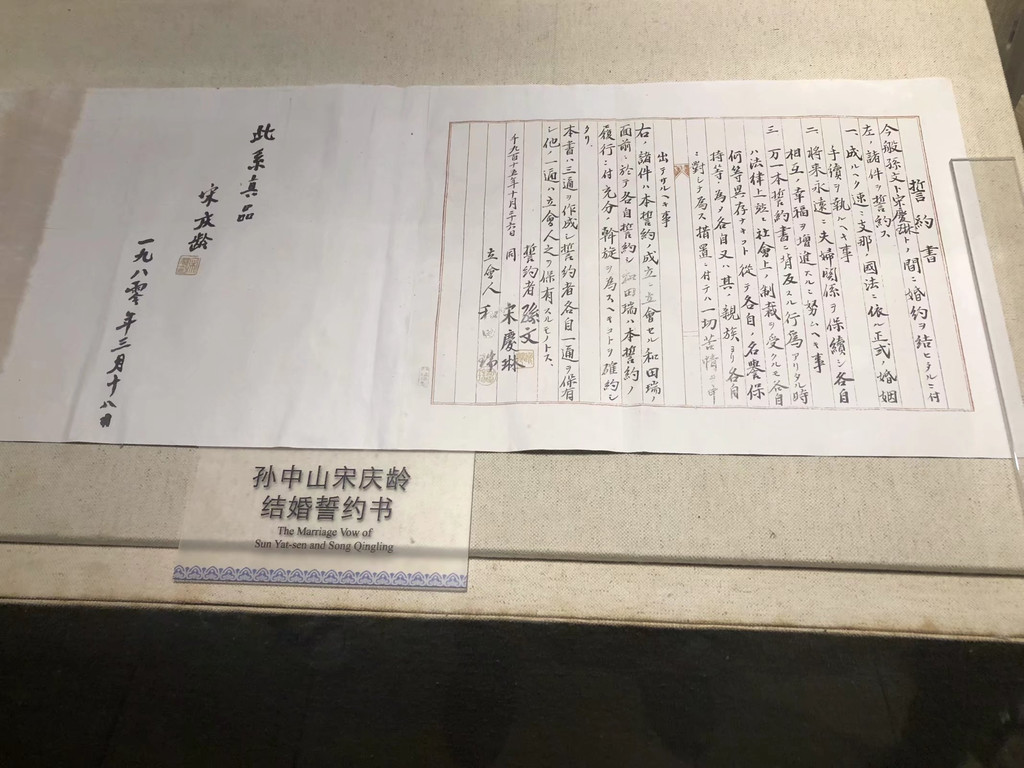 誓約書
今般孫文ト宋慶琳トノ間ニ婚約ヲ結ヒタルニ付
左ノ諸件ヲ誓約ス
一、成ルヘク速ニ支那ノ國法ニ依ル正式ノ婚姻
手續ヲ執ルヘキ事
二、將来永遠ニ夫婦関係ヲ保續シ各自
相互ノ幸福ヲ増進スルニ努ムヘキ事
三、万一本誓約書ニ背反スル行爲アリタル時
ハ法律上並ニ社會上ノ制裁ヲ受クルモ各自
何等異存ナキコト從テ各自ノ名譽保
持等ノ為メ各自又ハ其ノ親族ヨリ各自
ニ對シテ為ス措置ニ付テハ一切苦情ヲ申
出テサルヘキ事
右ノ諸件ハ本誓約ノ成立ニ立會セル和田瑞ノ
面前ニ於テ各自誓約シ和田瑞ハ本誓約ノ
履行ニ付充分ノ斡旋ヲ為スヘキコトヲ確約シ
タリ、
本書ハ三通ヲ作成シ誓約者各自一通ヲ保有
シ他ノ一通ハ立會人之ヲ保有スルモノトス、
千九百十五年十月二十六日
誓約者 孫文
同 宋慶琳
立會人 和田瑞
此系真品
宋庆龄
一九八零年三月十八日
孙中山宋庆龄
结婚誓约书
The Marriage Vow of
Sun Yat-sen and Song Qingling